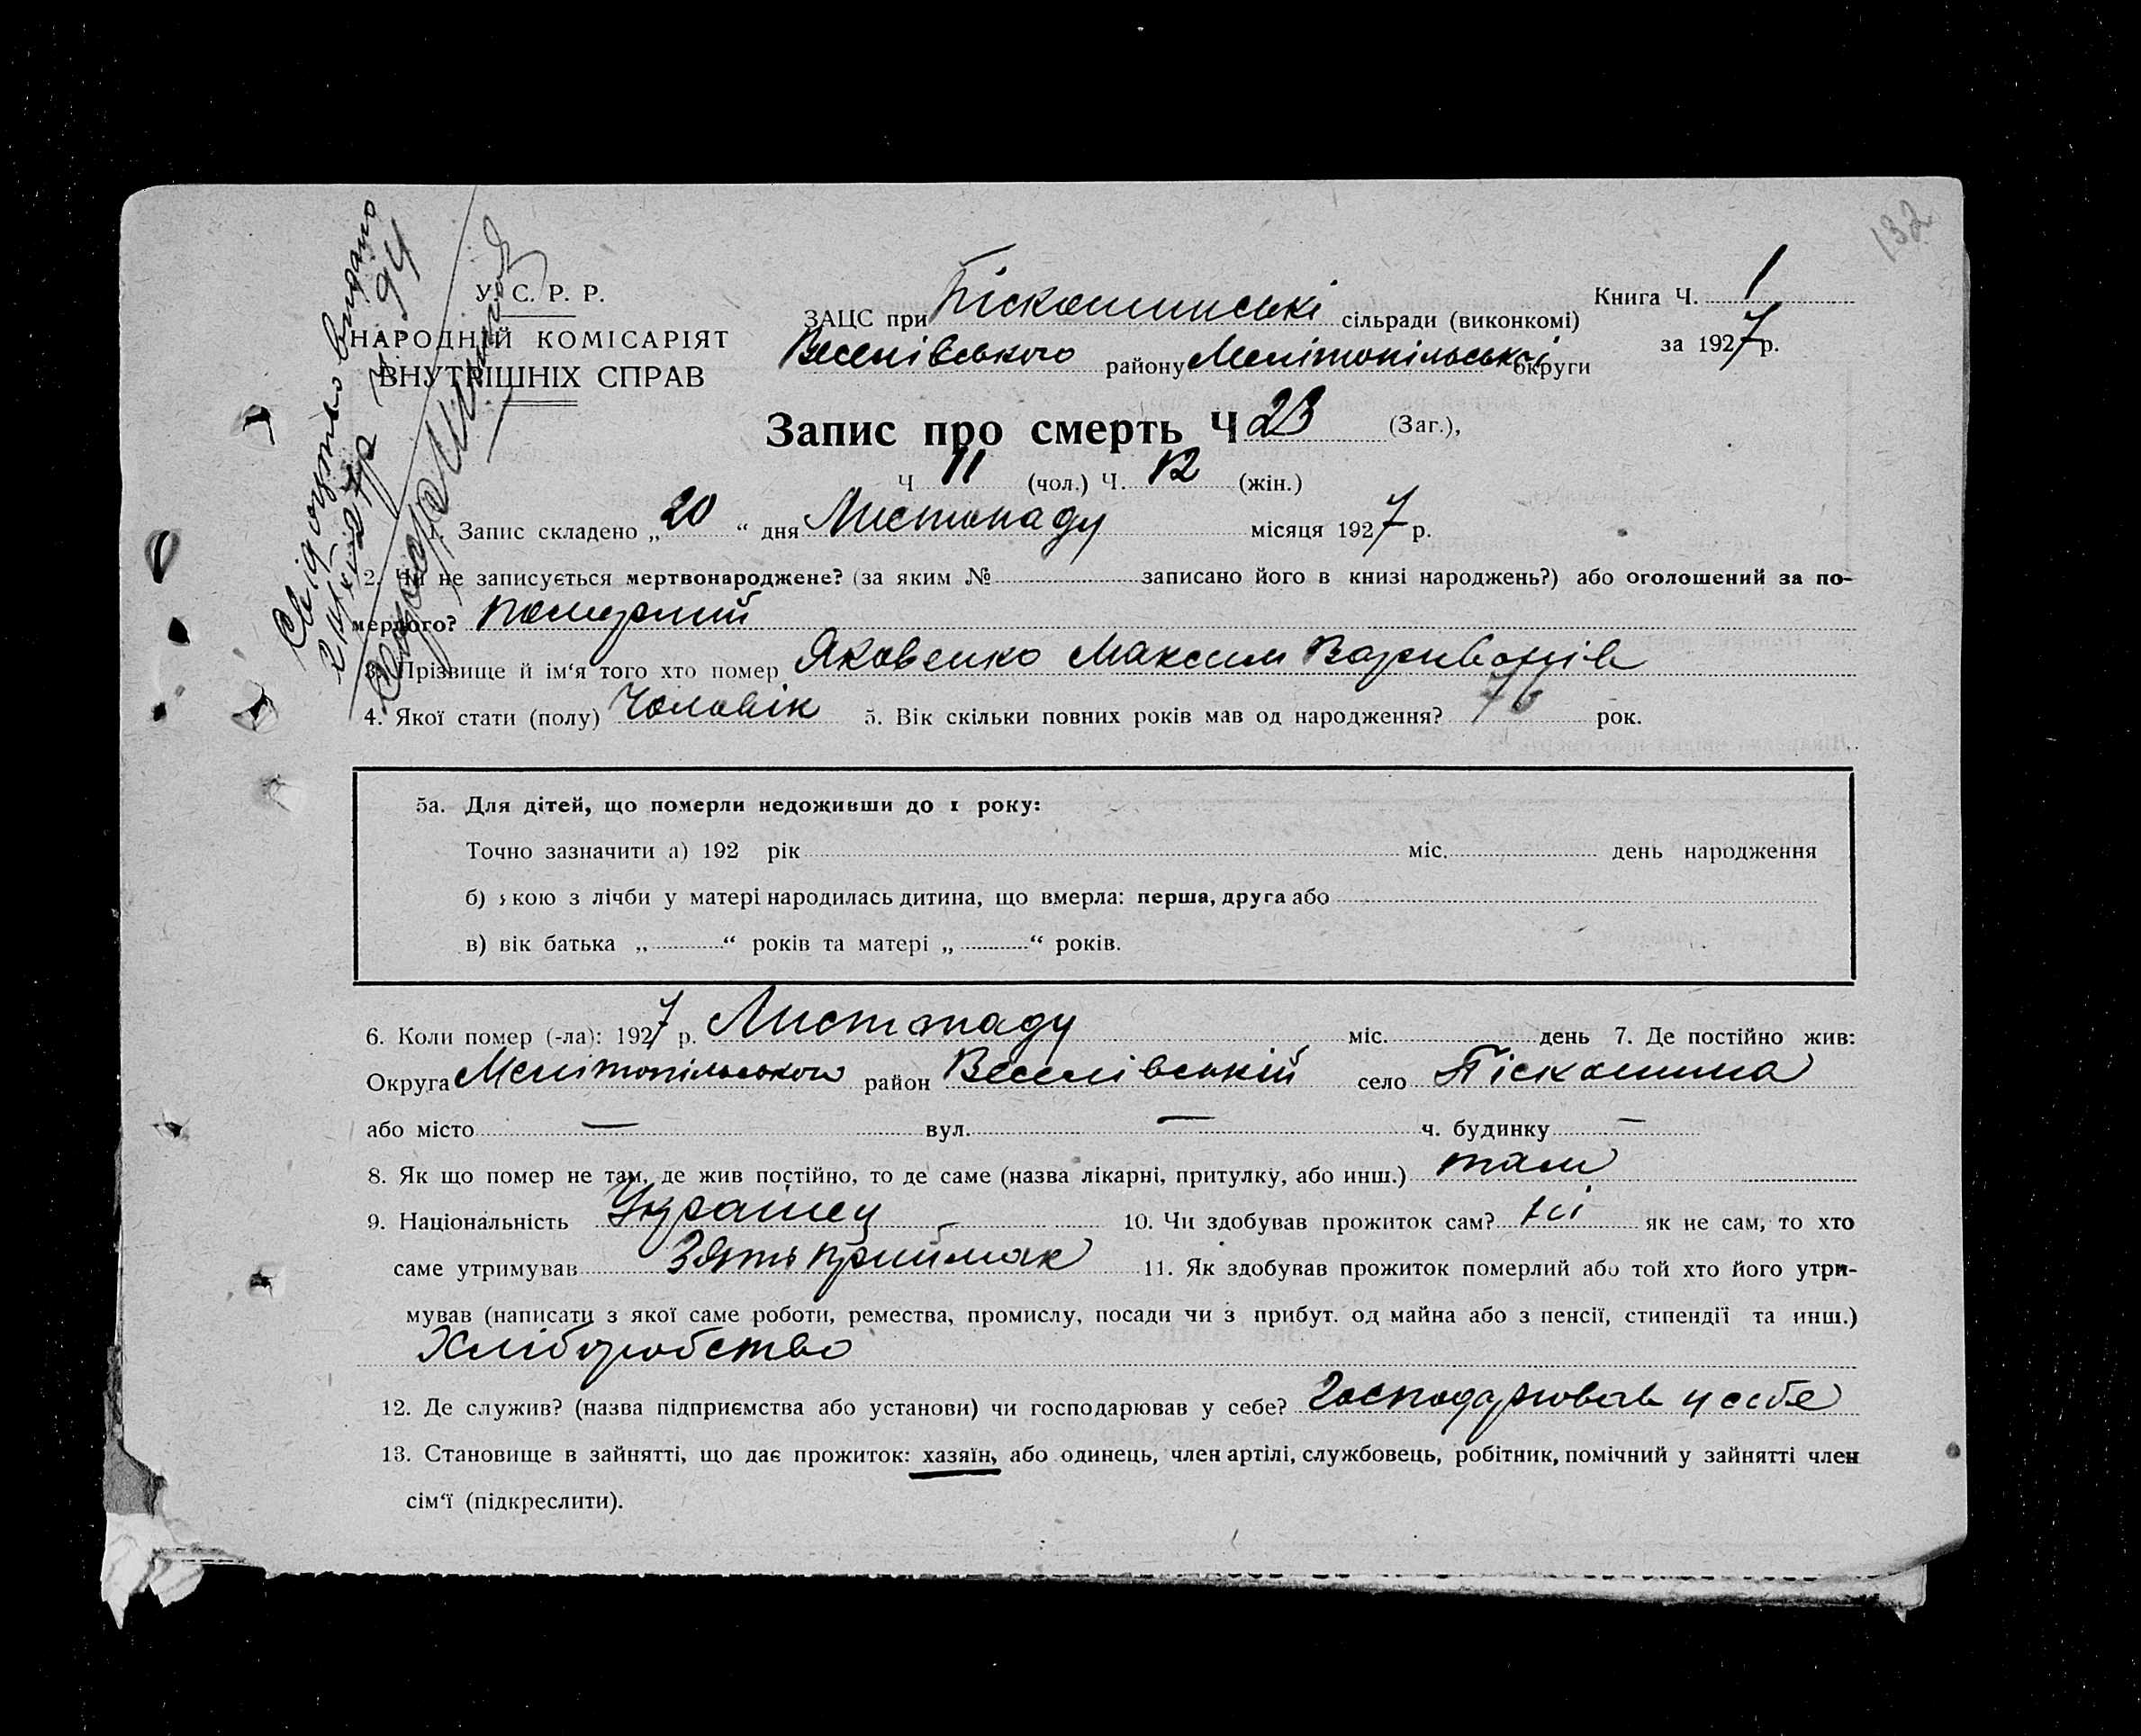 132
Свідоцтво видано
21/XI 27 р. Ч 94
У. С. Р. Р.
НАРОДНІЙ КОМІСАРІЯТ
ВНУТРІШНІХ СПРАВ
ЗАЦС при Піскошинські сільради (виконкомі)
Веселівського району Мелітопільської округи
Книга Ч. 1
за 1927 р.
Запис про смерть Ч 23 (Заг.),
Ч 11 (чол.) Ч. 12 (жін.)
1. Запис складено „ 20 “ дня Листопаду місяця 1927 р.
2. Чи не записується мертвонароджене? (за яким № записано його в книзі народжень?) або оголошений за по-
мерлого? померший
3. Прізвище й ім‘я того хто помер Яковенко Максим
4. Якої стати (полу) Чоловік 5. Вік скільки повних років мав од народження? 70 рок.
5а. Для дітей, що померли недоживши до 1 року:
Точно зазначити а) 192 рік міс. день народження
б) якою з лічби у матері народилась дитина, що вмерла: перша, друга або
в) вік батька „ “ років та матері „ “ років.
6. Коли помер (-ла): 1927 р. Листопаду міс. день 7. Де постійно жив:
Округа Мелітопільского район Веселівський село Піскошина
або місто — вул. — ч. будинку —
8. Як що помер не там, де жив постійно, то де саме (назва лікарні, притулку, або инш.) там
9. Національність Українец 10. Чи здобував прожиток сам? ні як не сам, то хто
саме утримував Зять приймак 11. Як здобував прожиток померлий або той хто його утри-
мував (написати з якої саме роботи, ремества, промислу, посади чи з прибут. од майна або з пенсії, стипендії та инш.)
Хліборобство
12. Де служив? (назва підприємства або установи) чи господарював у себе? Господарював у себе
13. Становище в зайнятті, що дає прожиток: хазяїн, або одинець, член артілі, службовець, робітник, помічний у зайнятті член
сім‘ї (підкреслити).